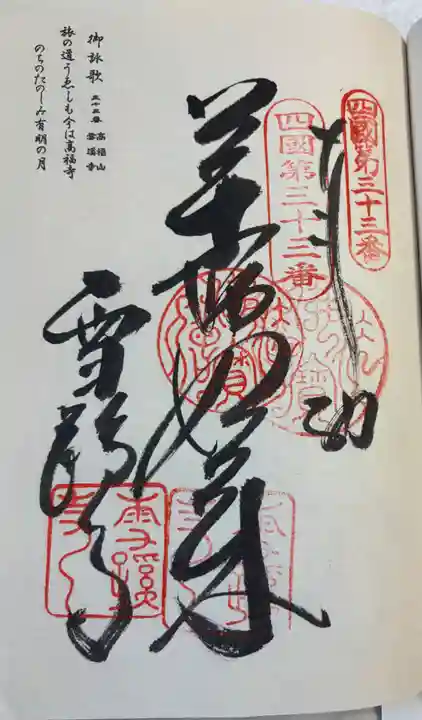 四國第三十三番
四國第三十三番
奉納
薬師如来
雪蹊寺
雪蹊
御詠歌 三十三番 高福山 雪蹊寺
旅の道うゑしも今は高福寺
のちのたのしみ有明の月